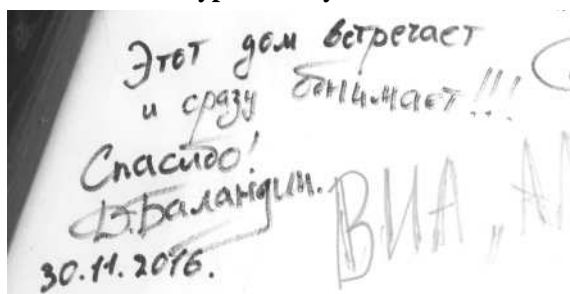 Этот дом встречает
и сразу
Спасибо!
Д. Баландин.
30.11.2016.
ВИА „А